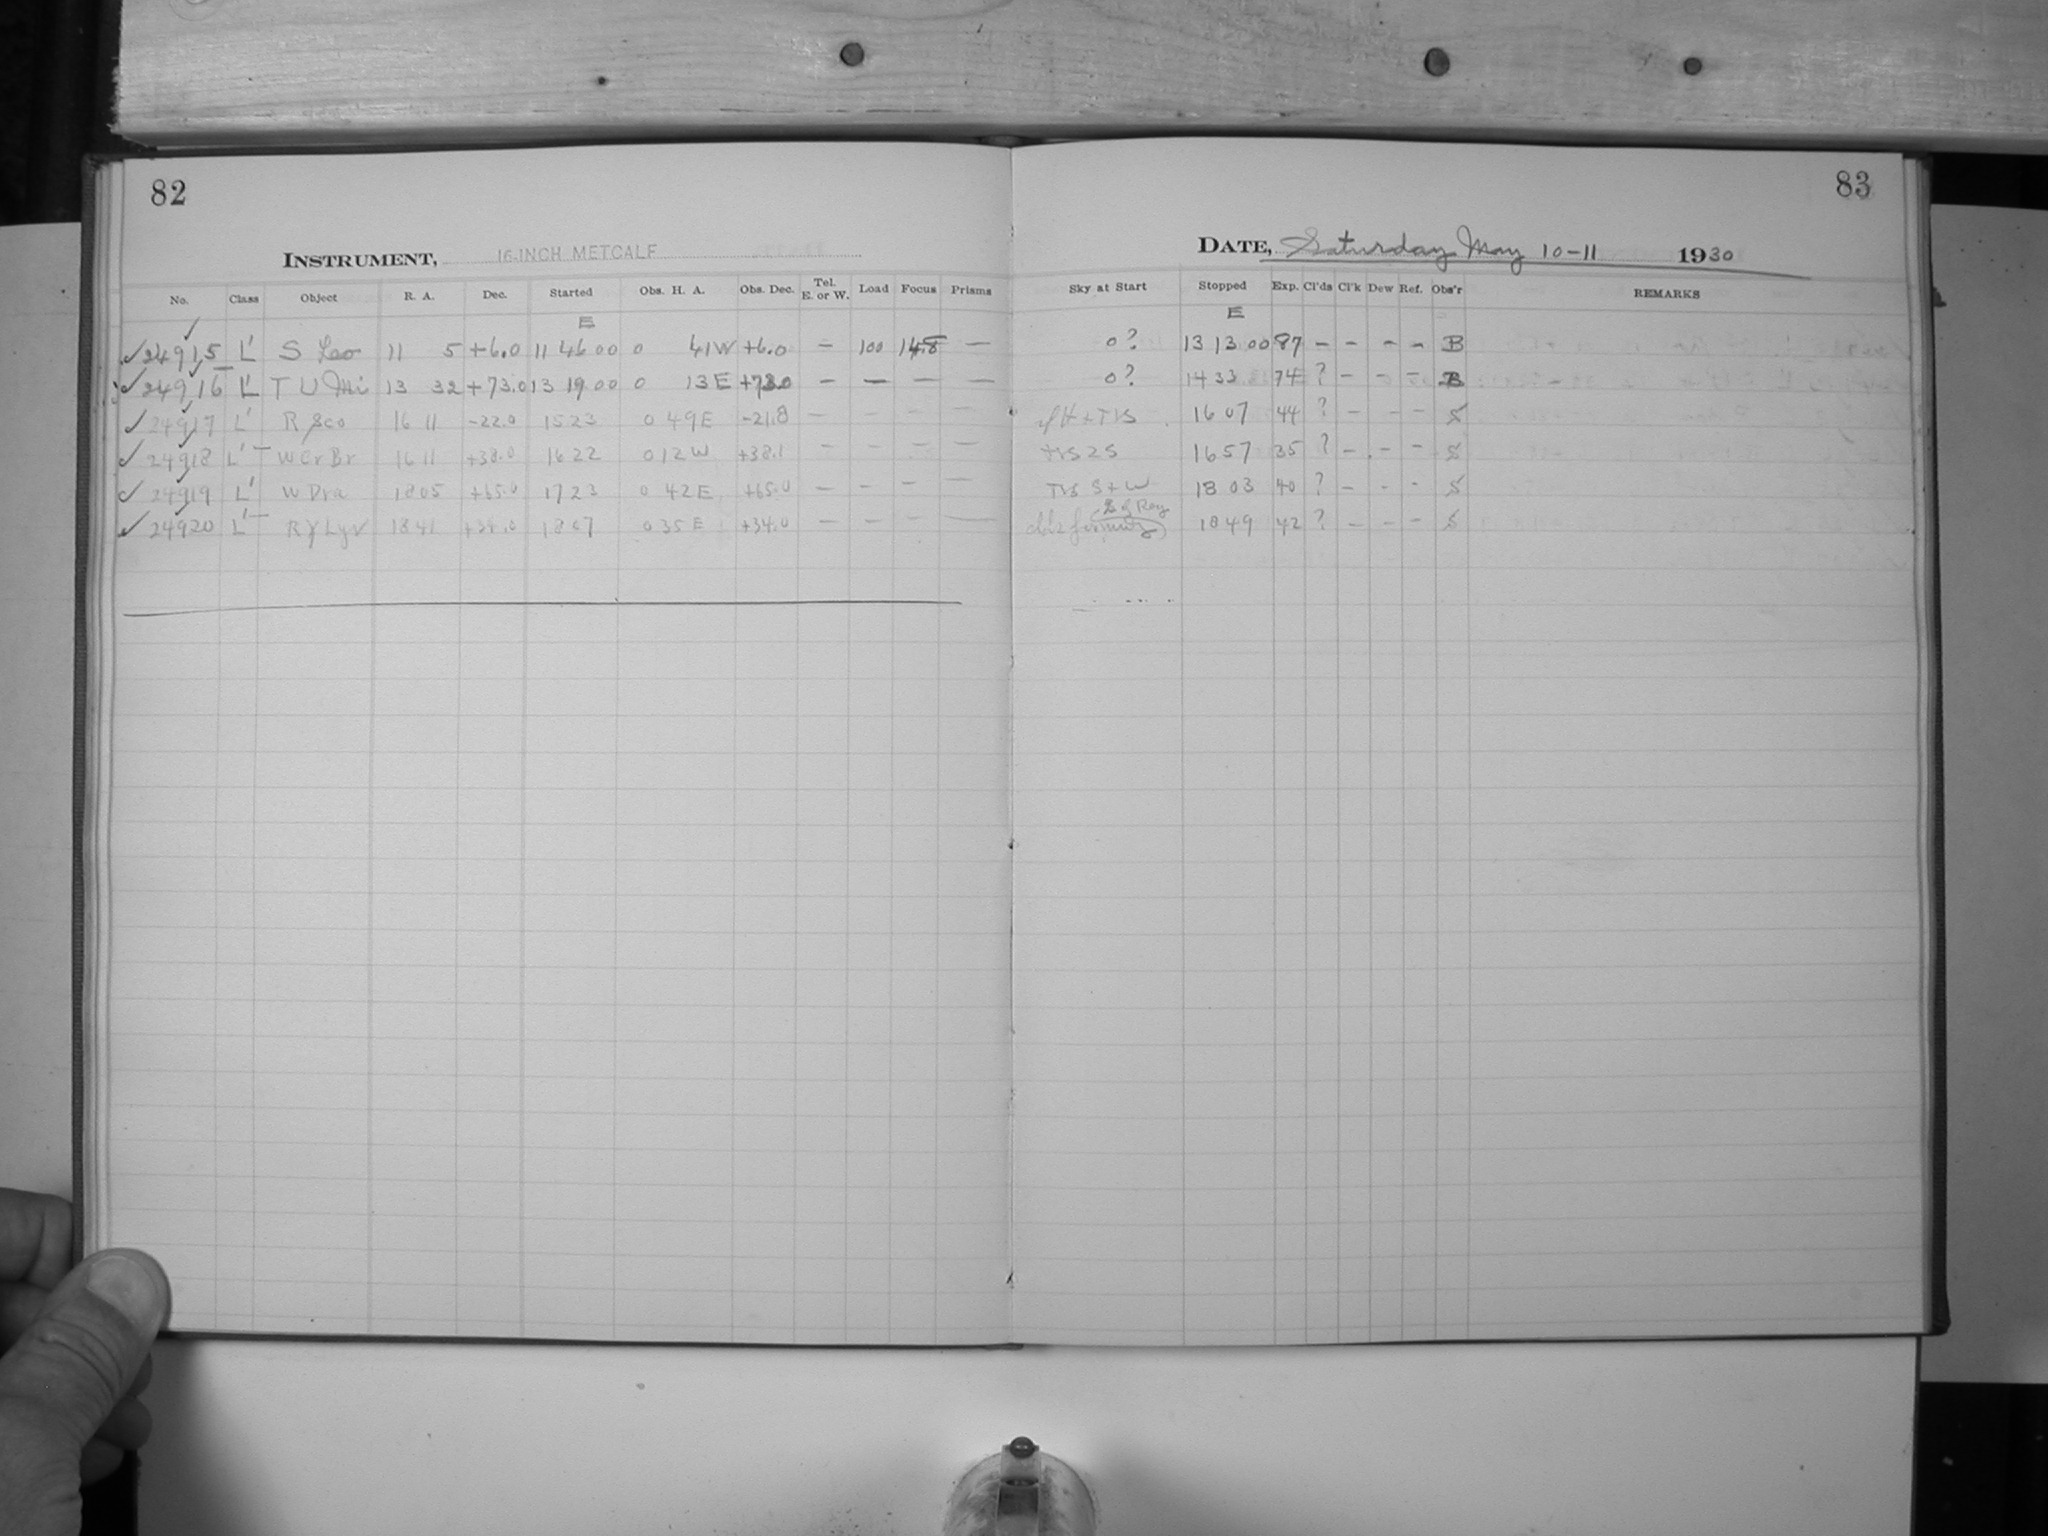 82
INSTRUMENT, 16-INCH METCALF
No. Class Object R. A. Dec. Started Obs. H. A. Obs. Dec. Tel. E. or W. Load Focus Prisms
E
✓24915 L' S Leo 11 5 +6.0 11 46 00 0 41W +6.0 — 100 14.8 —
✓24916 L' T U Mi 13 32 +73.0 13 19 00 0 13E +73.0 — — — —
✓24917 L' R Sco 16 11 -22.0 15 23 0 49E -21.8 — — — —
✓24918 L' W Cr Br 16 11 +38.0 16 22 0 12W +38.1 — — — —
✓24919 L' W Dra 18 05 +65.0 17 23 0 42E +65.0 — — — —
✓24920 L' R Lyr 18 41 +34.0 18 07 0 35E +34.0 — — — —
83
DATE, Saturday May 10-11 1930
Sky at Start Stopped Exp. Cl'ds Cl'k Dew Ref. Obs'r REMARKS
E
0? 13 13 00 87 — — — — B
0? 14 33 74 ? — — — B
16 07 44 ? — — — S
16 57 35 ? — — — S
S+W 18 03 40 ? — — — S
18 49 42 ? — — — S